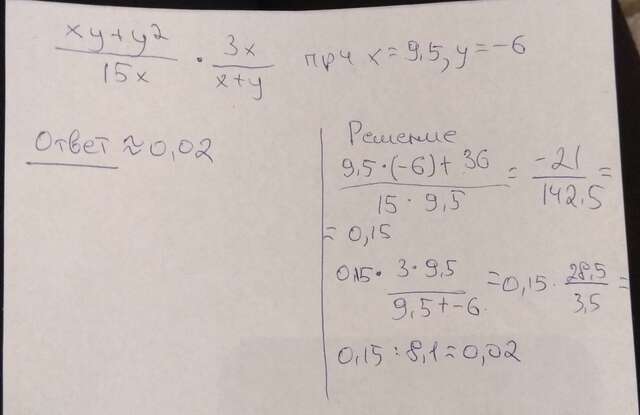 (xy+y²)/(15x) · (3x)/(x+y) при x=9,5, y=-6
Ответ ≈0,02
Решение
(9,5·(-6)+36)/(15·9,5) = (-21)/(142,5) =
= 0,15
0,15· (3·9,5)/(9,5+-6) =0,15· (28,5)/(3,5) =
0,15:8,1=0,02